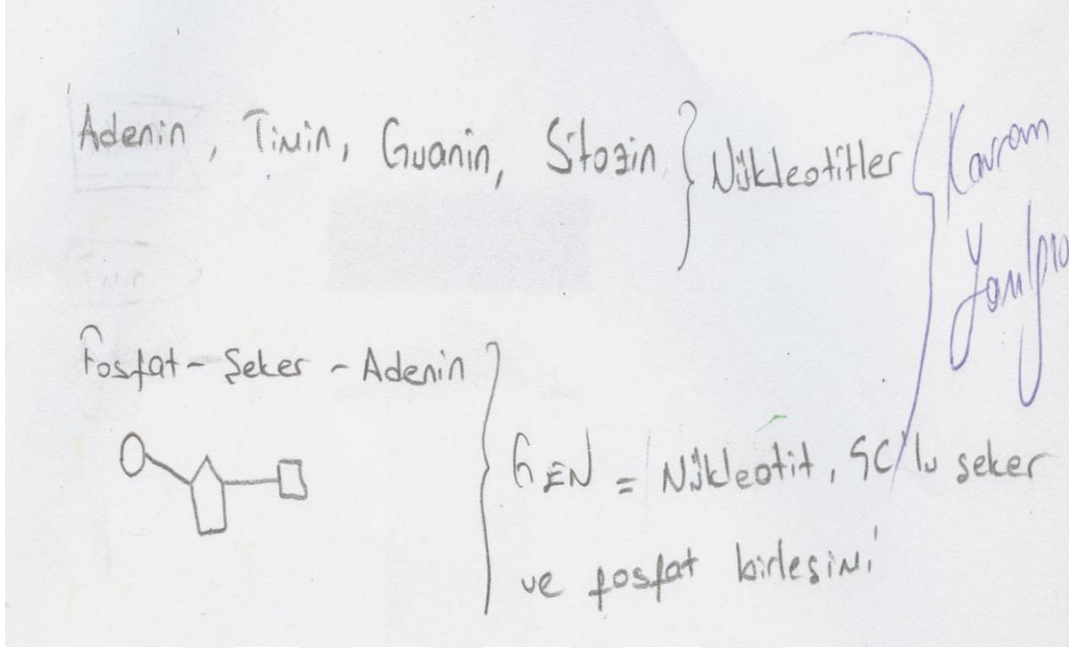 Adenin, Timin, Guanin, Sitozin } Nükleotitler
Kavram
Fosfat - Şeker - Adenin
GEN = Nükleotit, 5C'lu şeker
ve fosfat birleşimi